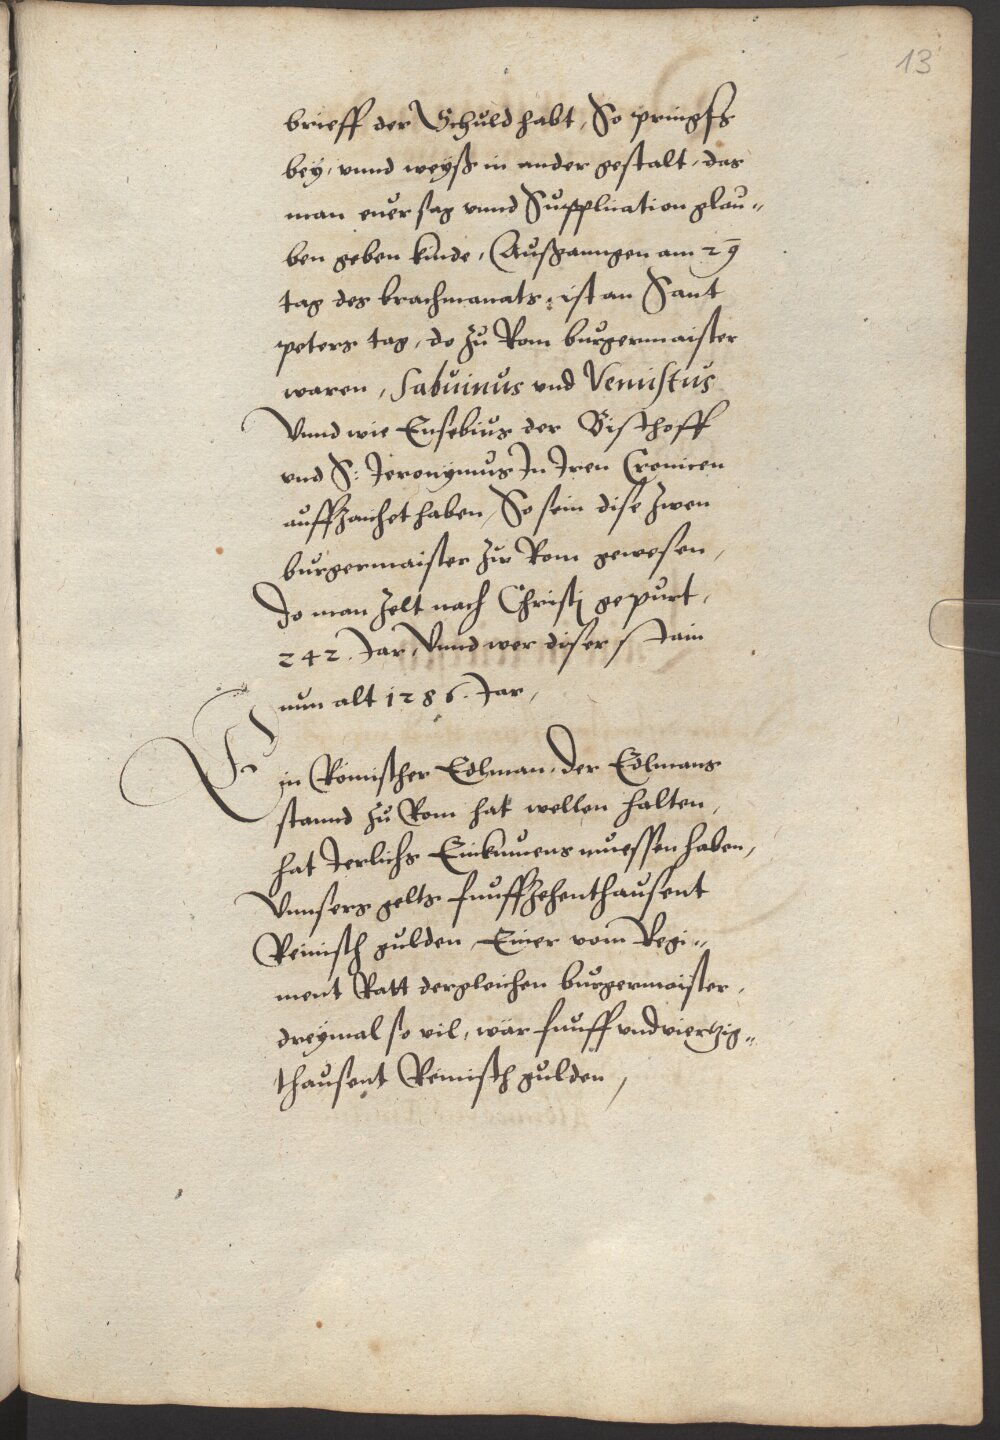 13
brieff der Schuld habt, So pringhs
bey, vnnd weyß in ander gestalt, das
man euer sag vnnd Supplication glau„
ben geben kinde, Außganngen am 29
tag des brachmanats, ist an Sant
peters tag, do zu Rom burgermaister
waren, Sabuinus und Venustus
Vnnd wie Eusebius der Bischoff
vnd S: Jeronymus In Iren Cronicen
auffzaichet haben, So sein dise zwen
burgermaister zu Rom gewesen,
do man zelt nach Christi gepurt,
242. Jar, Vnnd wer diser stain
nun alt 1286. Jar,
Ein Römischer Edlman, der Edlmans
stannd zu Rom hat wellen halten,
hat Jerlichs Einkumens muessen haben,
Vnnsers gelts funffzehenthausent
Reinisch gulden, Einer vom Regi„
ment Ratt dergleichen burgermaister,
dreymal so vil, wär funff vnd viertzig„
thausent Reinisch gulden,